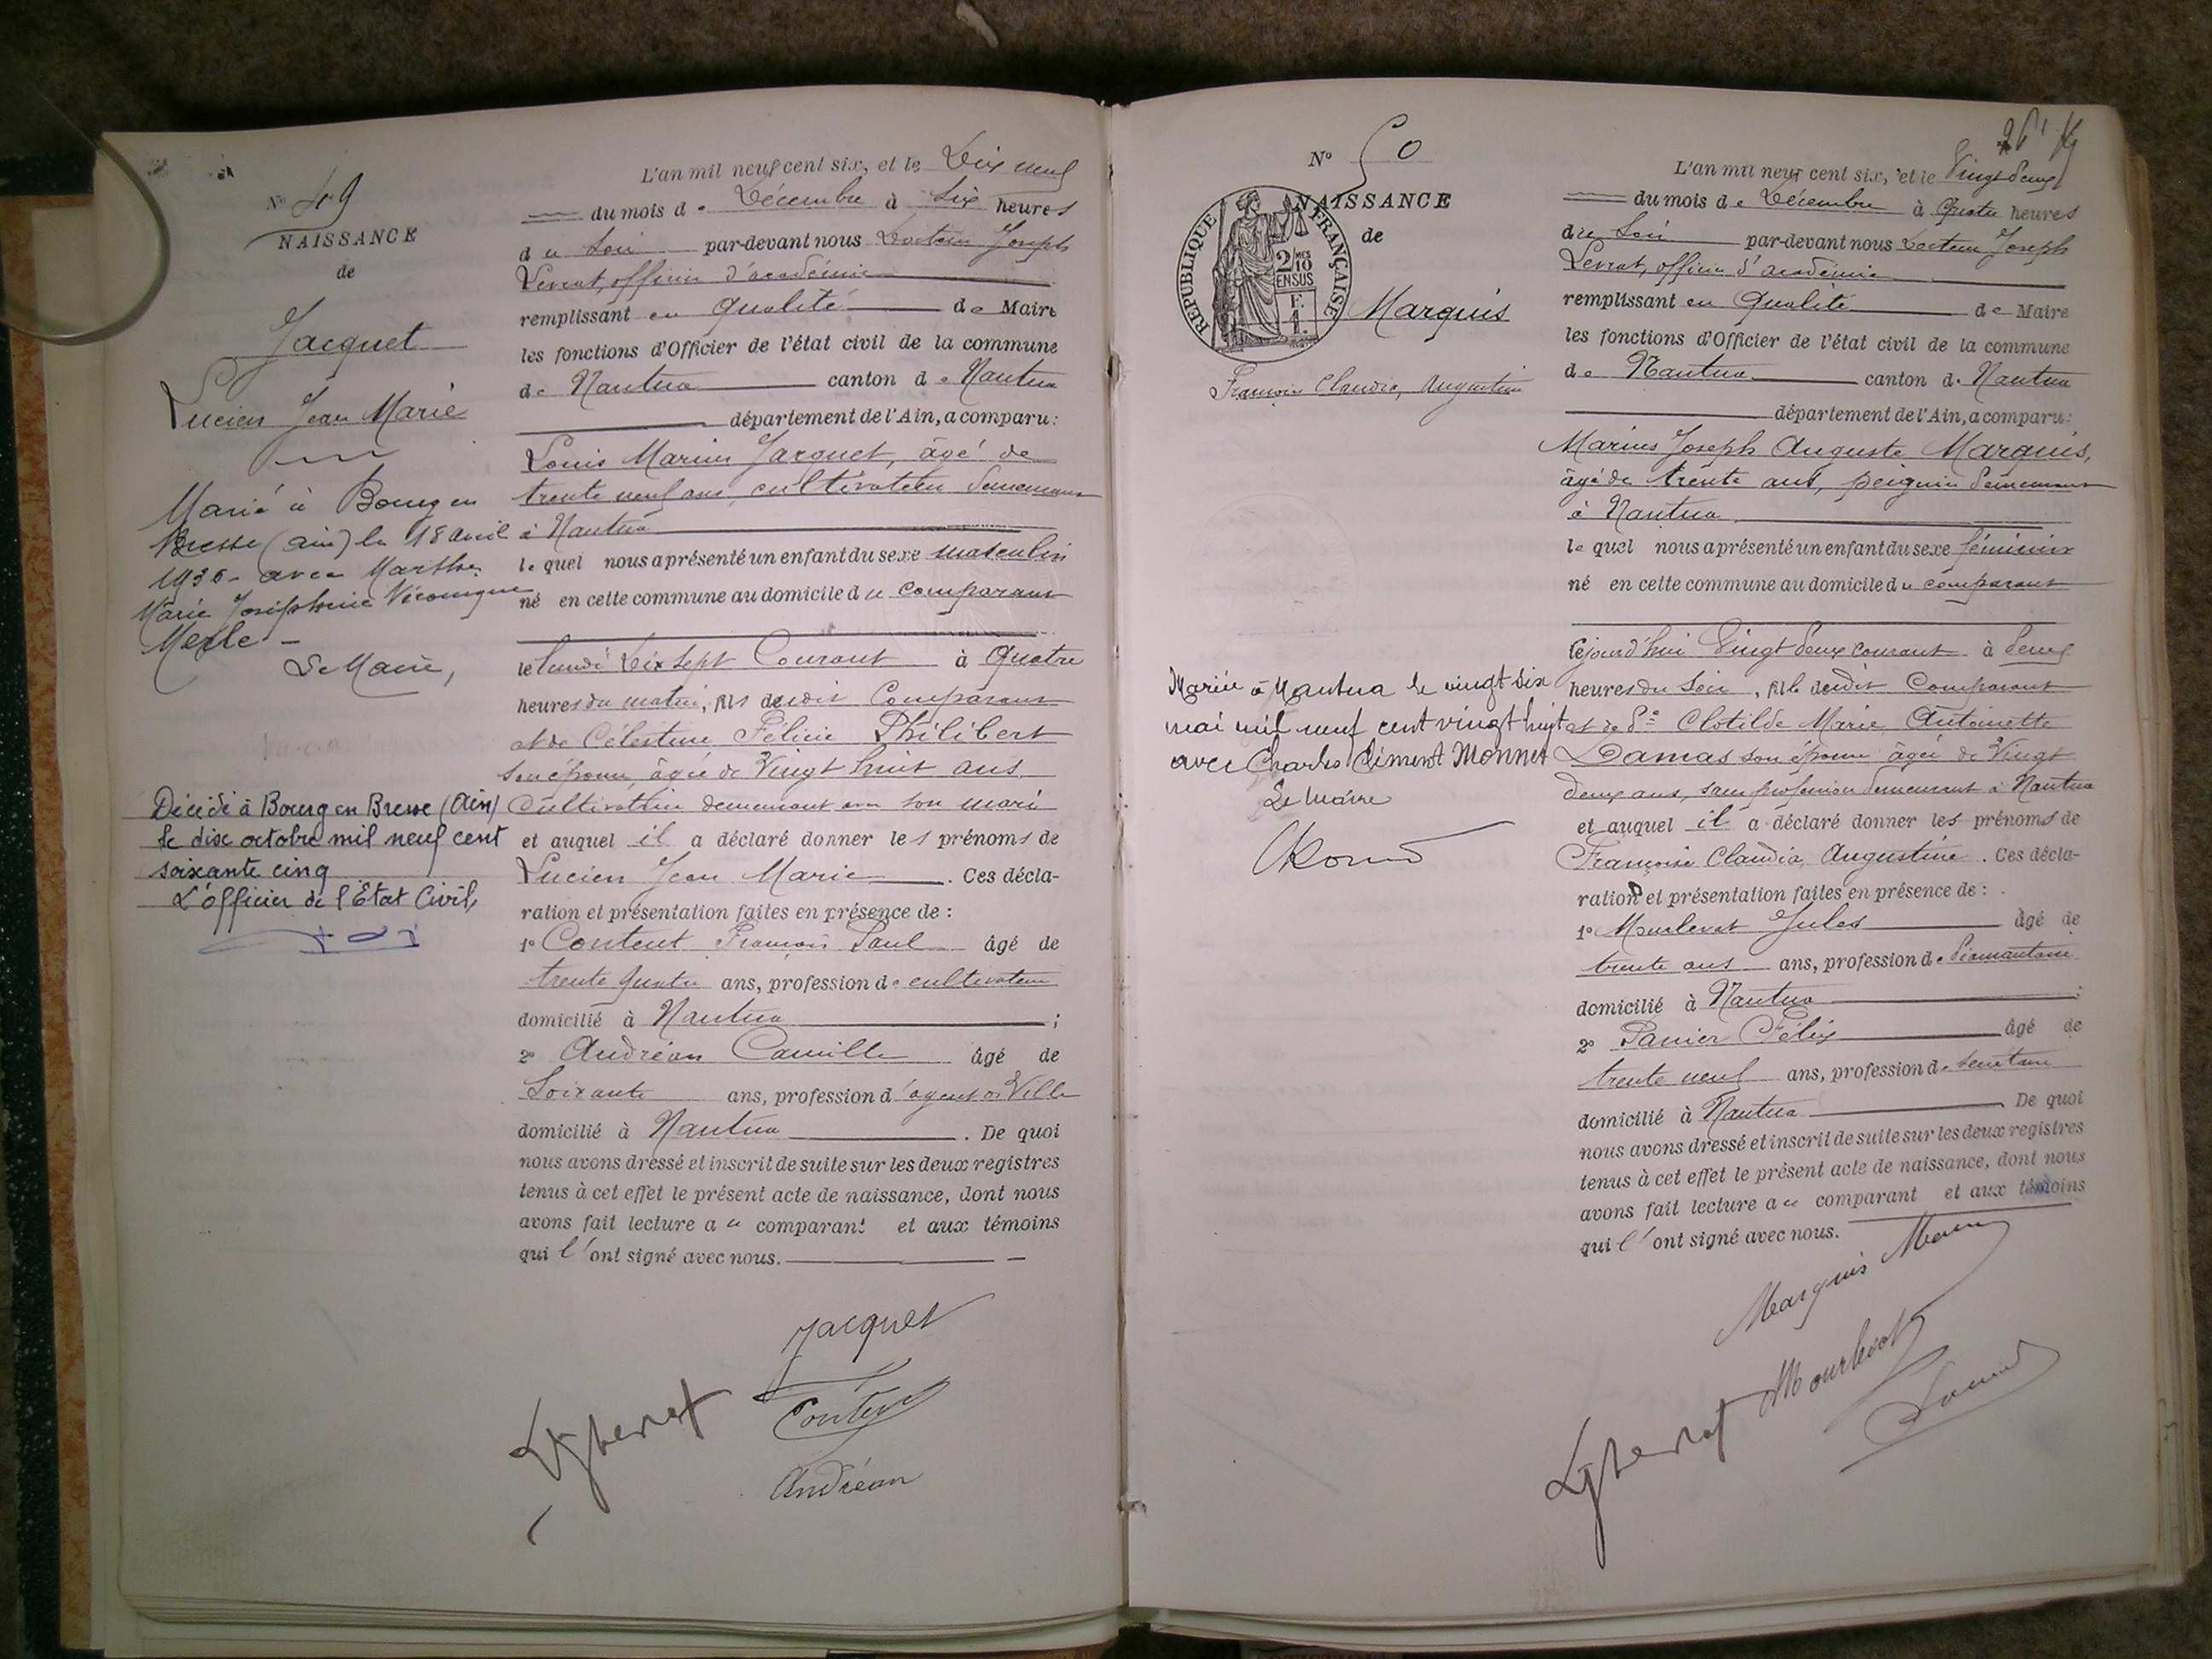 N° 49
NAISSANCE
de
Jacquet
Lucien Jean Marie
Marié à Bourg en
Bresse (Ain) le 18 avril
1936 - avec Marthe
Marie Joséphine Véronique
Merle -
Le Maire,
Décédé à Bourg en Bresse (Ain)
le dix octobre mil neuf cent
soixante cinq
L'officier de l'Etat Civil,
L'an mil neuf cent six, et le Dix neuf
du mois de Décembre à Six heures
du Soir par-devant nous Docteur Joseph
Levrat, officier d'académie
remplissant en qualité de Maire
les fonctions d'Officier de l'état civil de la commune
de Nantua canton de Nantua
département de l'Ain, a comparu :
Louis Marius Jacquet, âgé de
trente neuf ans, cultivateur demeurant
à Nantua
lequel nous a présenté un enfant du sexe masculin
né en cette commune au domicile du comparant
le lundi Dix Sept Courant à Quatre
heures du matin, fils dudit Comparant
et de Célestine Félicie Philibert
son épouse âgée de Vingt huit ans
Cultivatrice demeurant avec son mari
et auquel il a déclaré donner les prénoms de
Lucien Jean Marie. Ces décla-
ration et présentation faites en présence de :
1° Content François Paul âgé de
trente quatre ans, profession de cultivateur
domicilié à Nantua ;
2° Andréan Camille âgé de
Soixante ans, profession d'agent de Ville
domicilié à Nantua. De quoi
nous avons dressé et inscrit de suite sur les deux registres
tenus à cet effet le présent acte de naissance, dont nous
avons fait lecture au comparant et aux témoins
qui l'ont signé avec nous.
Jacquet
Content
Andréan
N° 50
NAISSANCE
de
RÉPUBLIQUE FRANÇAISE
2/10 MES
EN SUS
Marquis
Françoise Claudia, Augustine
Mariée à Nantua le vingt six
mai mil neuf cent vingt huit
avec Charles Clément Monnet
Le Maire
L'an mil neuf cent six, et le Vingt deux
du mois de Décembre à Quatre heures
du Soir par-devant nous Docteur Joseph
Levrat, officier d'académie
remplissant en Qualité de Maire
les fonctions d'Officier de l'état civil de la commune
de Nantua canton de Nantua
département de l'Ain, a comparu :
Marius Joseph Auguste Marquis,
âgé de trente ans, peignier demeurant
à Nantua
lequel nous a présenté un enfant du sexe féminin
né en cette commune au domicile du comparant
cejourd'hui Vingt deux courant à deux
heures du Soir, fille dudit Comparant
et de De Clotilde Marie Antoinette
Damas son épouse âgée de Vingt
deux ans, sans profession demeurant à Nantua
et auquel il a déclaré donner les prénoms de
Françoise Claudia, Augustine. Ces décla-
ration et présentation faites en présence de :
1° Mourlevat Jules âgé de
trente ans ans, profession de Diamantaire
domicilié à Nantua ;
2° Panier Félix âgé de
trente neuf ans, profession de secrétaire
domicilié à Nantua De quoi
nous avons dressé et inscrit de suite sur les deux registres
tenus à cet effet le présent acte de naissance, dont nous
avons fait lecture au comparant et aux témoins
qui l'ont signé avec nous.
Marquis
Mourlevat